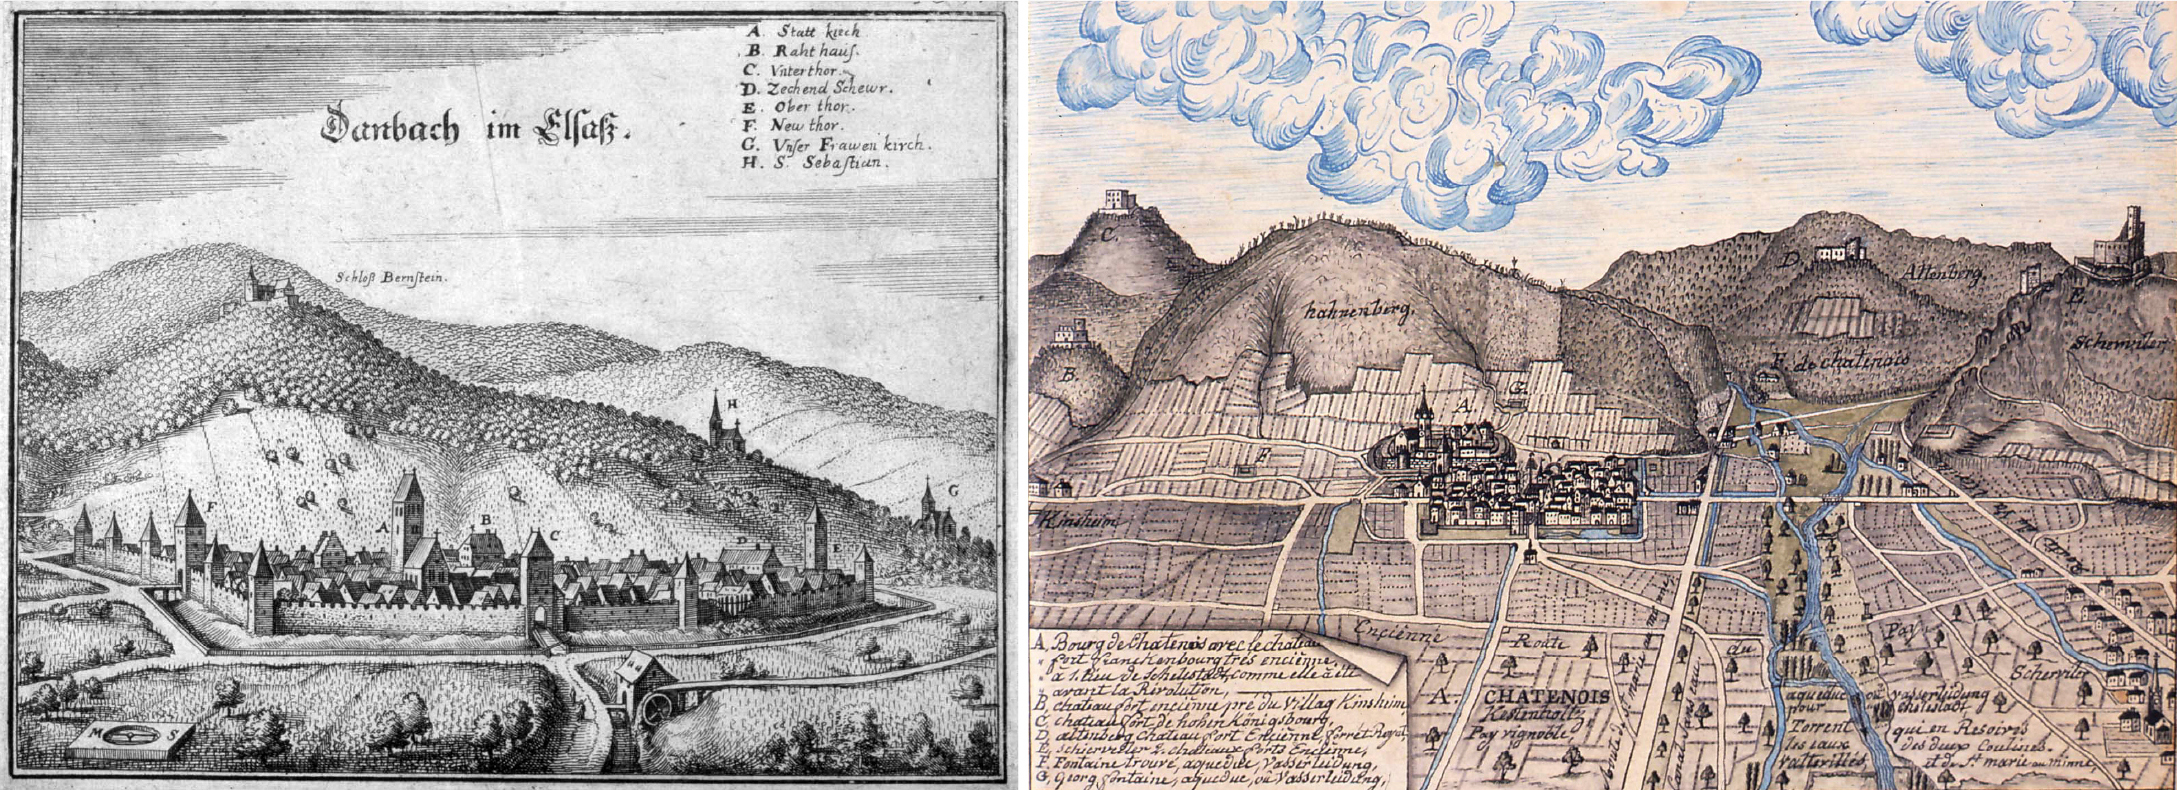 A Statt kirch
B. Rahthauß.
C. Vnterthor.
D. Zechend Schewr.
E. Ober thor.
F. New thor.
G. Vnser Frawen kirch.
H. S. Sebastian.
Danbach im Elsaß.
Schloß Bernstein.
H
G
F
A
B
C
D
E
M S
C.
hahnenberg.
D.
Altenberg.
E.
Scherviller
B.
F. de chatenois
G.
A.
F
Kinsheim
Encienne Route du Pay
Scherviller
A. CHATENOIS
Pay vignoble
Route de St marie au mine
Canal
aqueduc ou vasserleidung
pour chelestadt
Torrent qui en Resoires
les eaux des deux
et de St marie au minne
A. Bourg de Chatenois avec le chateau
fort franckenbourg tres encienne.
a 1. lieu de Schelestadt, comme elle a été
avant la Révolution,
B. chateau fort encienne pré du Villag Kinsheim
C. chateau fort de hohen Königsbourg,
D. altenberg Chateau fort Encienne forret Royal
E. schierveller 2. chateaux forts Encienne,
F. Fontaine trouvé, aqueduc, Vasserleidung,
G. Georg fontaine, aqueduc, ou Vasserleidung,